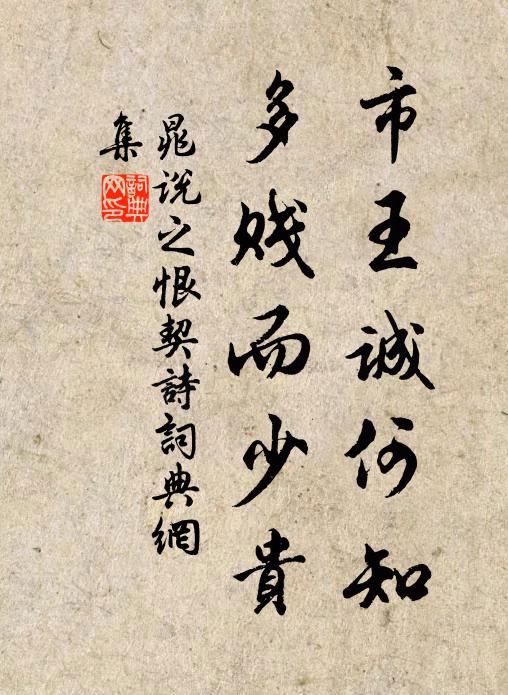 市王诚何知
多贱而少貴
晁说之恨契詩詞典網
集
詞典网印